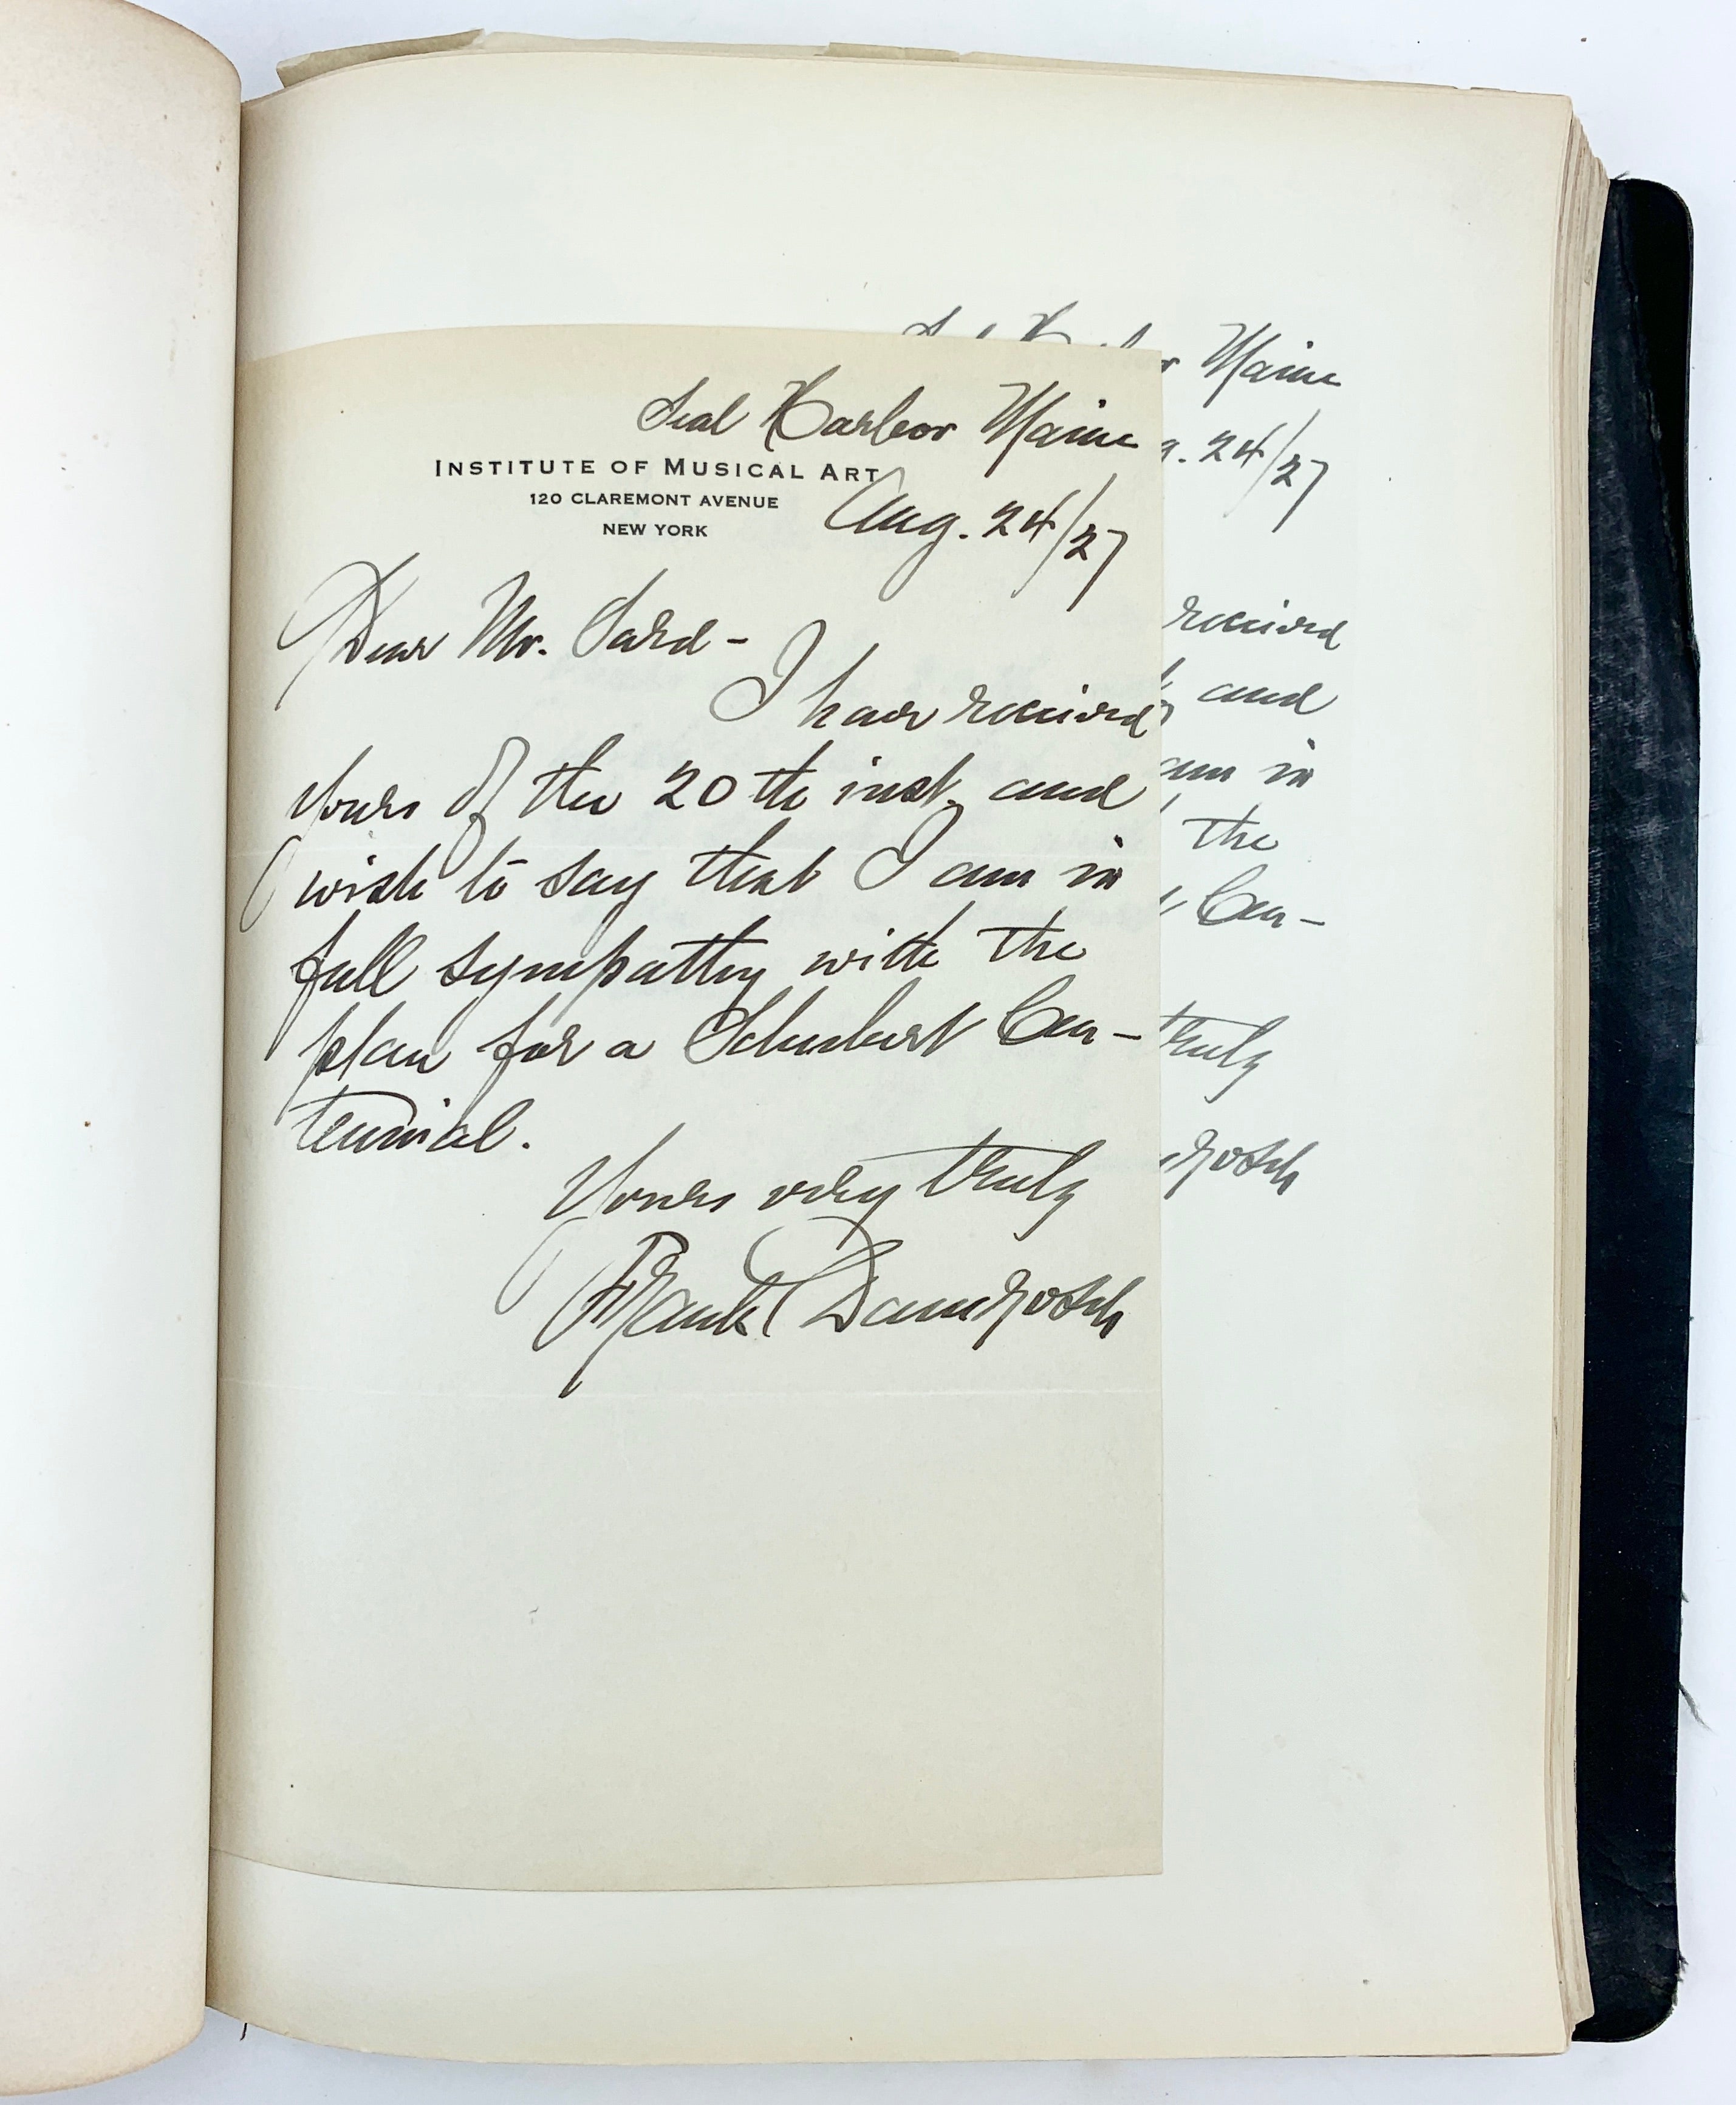 Seal Harbor Maine
INSTITUTE OF MUSICAL ART
120 CLAREMONT AVENUE
NEW YORK
Aug. 24/27
Dear Mr. Sard -
I have received
yours of the 20th inst. and
wish to say that I am in
full sympathy with the
plan for a Schubert Cen-
tennial.
Yours very truly
Frank Damrosch
Maine
24/27
received
and
am in
the
Cen-
truly